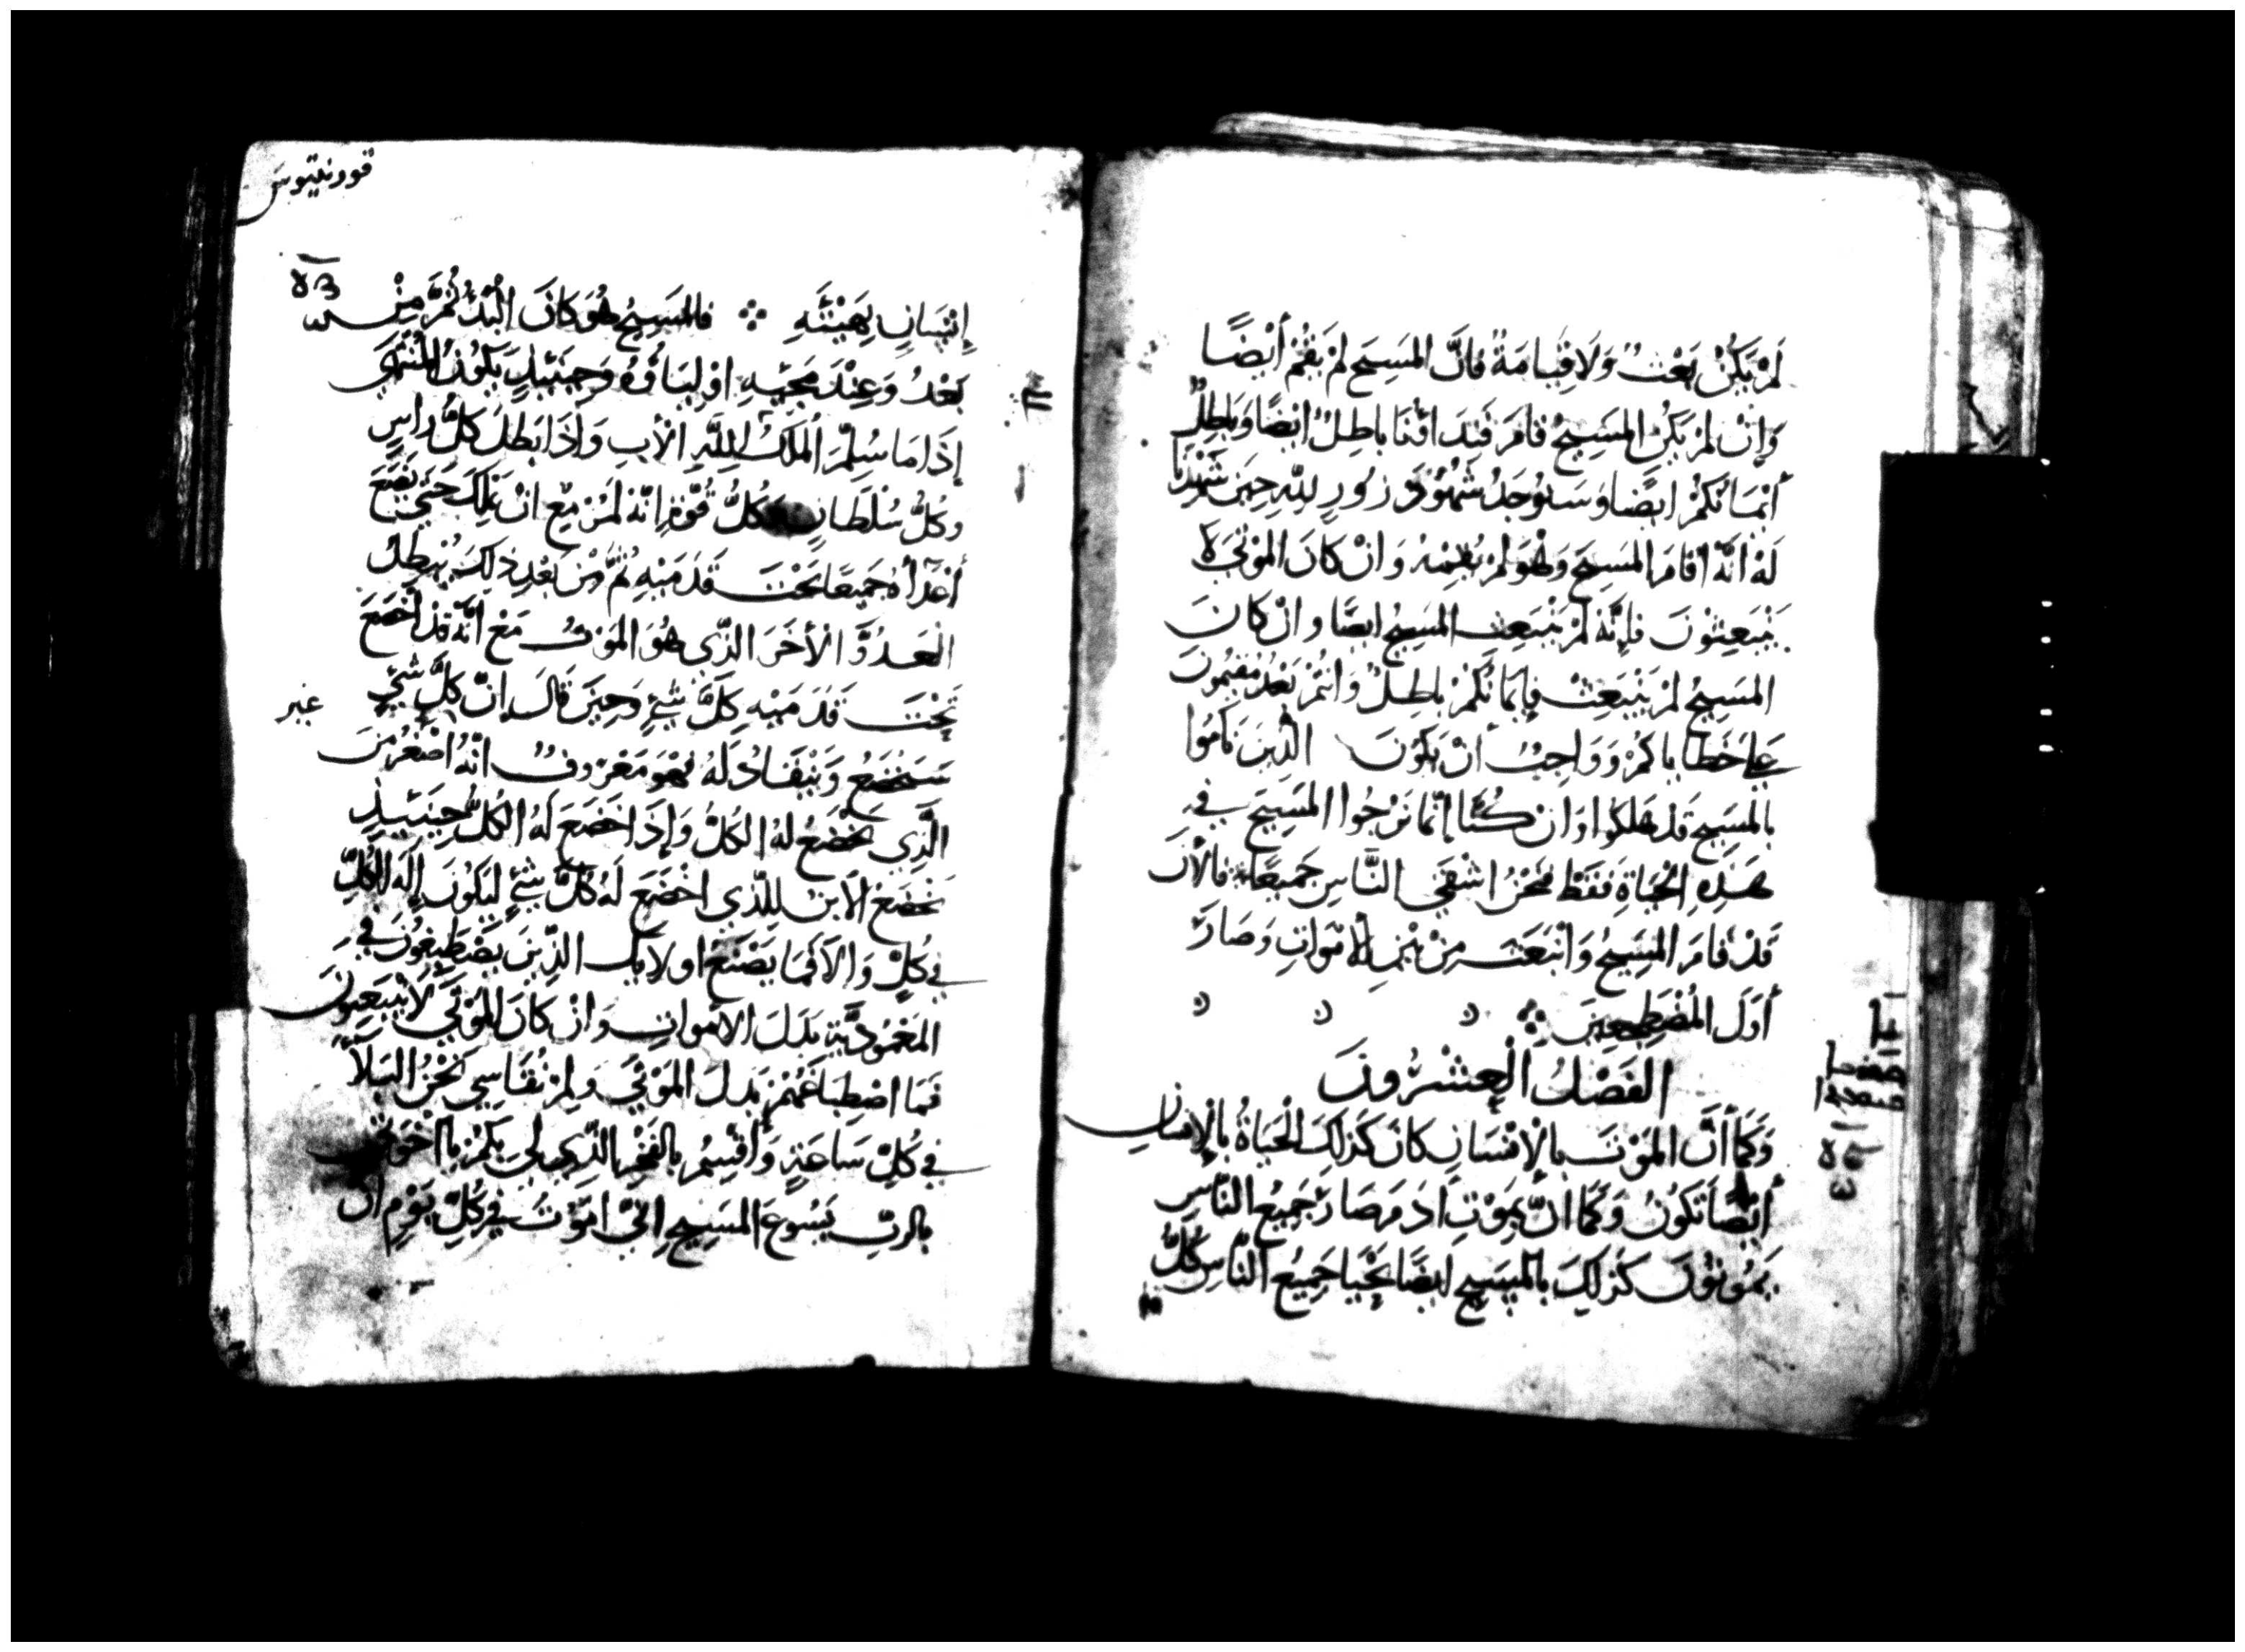 لَمْ يَكُنْ بَعْثٌ وَلَا قِيَامَةٌ فَانَّ المَسِيحَ لَمْ يَقُمْ أَيْضًا
وَإِنْ لَمْ يَكُنِ المَسِيحُ قامَ فَنِدَاؤُنَا باطِلٌ ايْضًا وَبَاطِلٌ
أيْمَانُكُمْ ايضًا وَسَنُوجَدُ شُهُودَ زُورٍ لِلّهِ حِينَ شَهِدْنَا
لَهُ انَّهُ اقامَ المَسِيحَ وَهُوَ لَمْ يُقِمْهُ وَانْ كَانَ المَوْتَى لَا
يَنْبَعِثُونَ فَإِنَّهُ لَمْ يَنْبَعِثِ المَسِيحُ ايضًا وانْ كانَ
المَسِيحُ لَمْ يَنْبَعِثْ فَإيمَانُكُمْ باطِلٌ وَانْتُمْ بَعْدُ مُقِيمُونَ
عَلَى خَطَاياكُمْ وَوَاجِبٌ أنْ يَكُونَ الَّذِينَ نَامُوا
بالمَسِيحِ قد هَلكُوا وَانْ كُنَّا إنَّمَا نَرْجُوا المَسِيحَ في
هَذِهِ الْحَيَاةِ فَقَطْ فَنَحْنُ اشْقَى النَّاسِ جَمِيعًا فالْأنَ
قَدْ قَامَ المَسِيحُ وَانْبَعَثَ مِنْ بَيْنِ الأمْوَاتِ وَصَارَ
أوَلَ المُضْطَجِعِينَ
الفَصْلُ الْعِشْرُونَ
وَكَمَا أنَّ المَوْتَ بالْإنْسَانِ كانَ كَذلِكَ الْحَيَاةُ بالْإنسانِ
أيْضًا تَكُونُ وَكَمَا انَّ بِمَوْتِ آدَمَ صَارَ جَمِيعُ النَّاسِ
يَمُوتُونَ كَذلِكَ بالمَسِيحِ ايضًا يَحْيَا جَمِيعُ النَّاسِ كُلُّ
قورنتيوس
إنْسَانٍ بِهَيْئَتِهِ فالمَسِيحُ هُوَ كَانَ الْبَدْءُ ثُمَّ مِنْ
بَعْدُ وَعِنْدَ مَجِيّهِ اوْلِيَاؤُهُ وَحِينَئِذٍ يَكُونُ المُنْتَهَى
إذَا مَا سُلِّمَ المُلْكُ لِلّهِ الْأَبِ وَاذَا بَطَلَ كلُّ رأسٍ
وكلُّ سُلْطَانٍ وكُلُّ قُوَّةٍ إنَّهُ لَمُزْمِعٌ انْ يَمْلِكَ حَتَّى يَضَعَ
أعْدآءَهُ جَمِيعًا تَحْتَ قَدَمَيْهِ ثُمَّ مِنْ بَعْدِ ذلِكَ يُبْطِلُ
العَدُوَّ الْأخَرَ الَّذِي هُوَ المَوْتُ مَعْ انَّهُ قَدْ أخْضَعَ
تَحْتَ قَدَمَيْهِ كلَّ شَيٍْ وَحِينَ قَالَ إنَّ كلَّ شَيْءٍ
غير
سَيَخْضَعُ وَيَنْقَادُ لَهُ فَهُوَ مَعْرُوفٌ انَّهُ اصْغَرُ مِنَ
الَّذِي تَخْضَعُ لهُ الكلُّ وَإذَا خَضَعَ لَهُ الكلُّ حِينَئِيذٍ
يَخْضَعُ الاَبنُ لِلَّذِي اخْضَعَ لَهُ كلَّ شَيْءٍ لِيَكُونَ اللهَ الكُلِّ
في كُلٍّ وَالاَ فَمَا يَصْنَعُ اولائِك الذّينَ يَصْطَبِغُونَ في
المَعْمُودِيَّةِ بَدَلَ الاَمْواتِ وَانْ كانَ المَوْتَى لَا يَنْبَعِثُونَ
فَمَا اصْطِبَاغُهُمْ بَدلَ المَوْتَى وَلِمَ نُقَاسِي نَحْنُ البَلآَ
في كُلِّ سَاعَةٍ وَأقْسِمُ بالفَخْرِ الَّذِي لِي بِكُمْ يا اخْوَتِي
بالربِّ يَسُوعَ المَسِيحِ انِّي امُوْتُ فِي كُلِّ يَوْمٍ ان